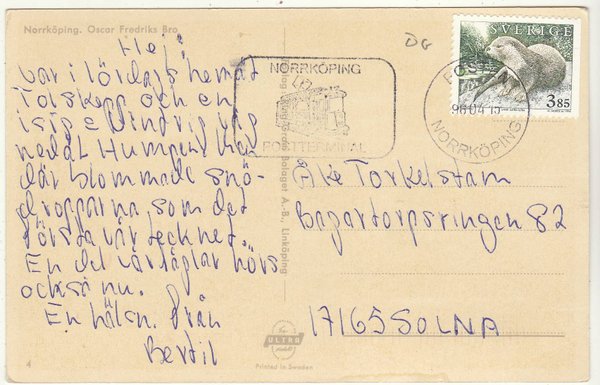 Norrköping. Oscar Fredriks Bro
Hej!
Var i lördags hemåt
och en
isig
nedåt
där blommade snö-
dropparna som det
första vårtecknet.
En del vårfåglar hörs
också nu.
En hälsn. från
Bertil
4
Bolaget A.B., Linköping
Ultra
Printed in Sweden
DG
NORRKÖPING
POSTTERMINAL
SVERIGE
3,85
POST
96 04 15
NORRKÖPING
Åke Torkelstam
Bagartorpsringen 82
17165 SOLNA